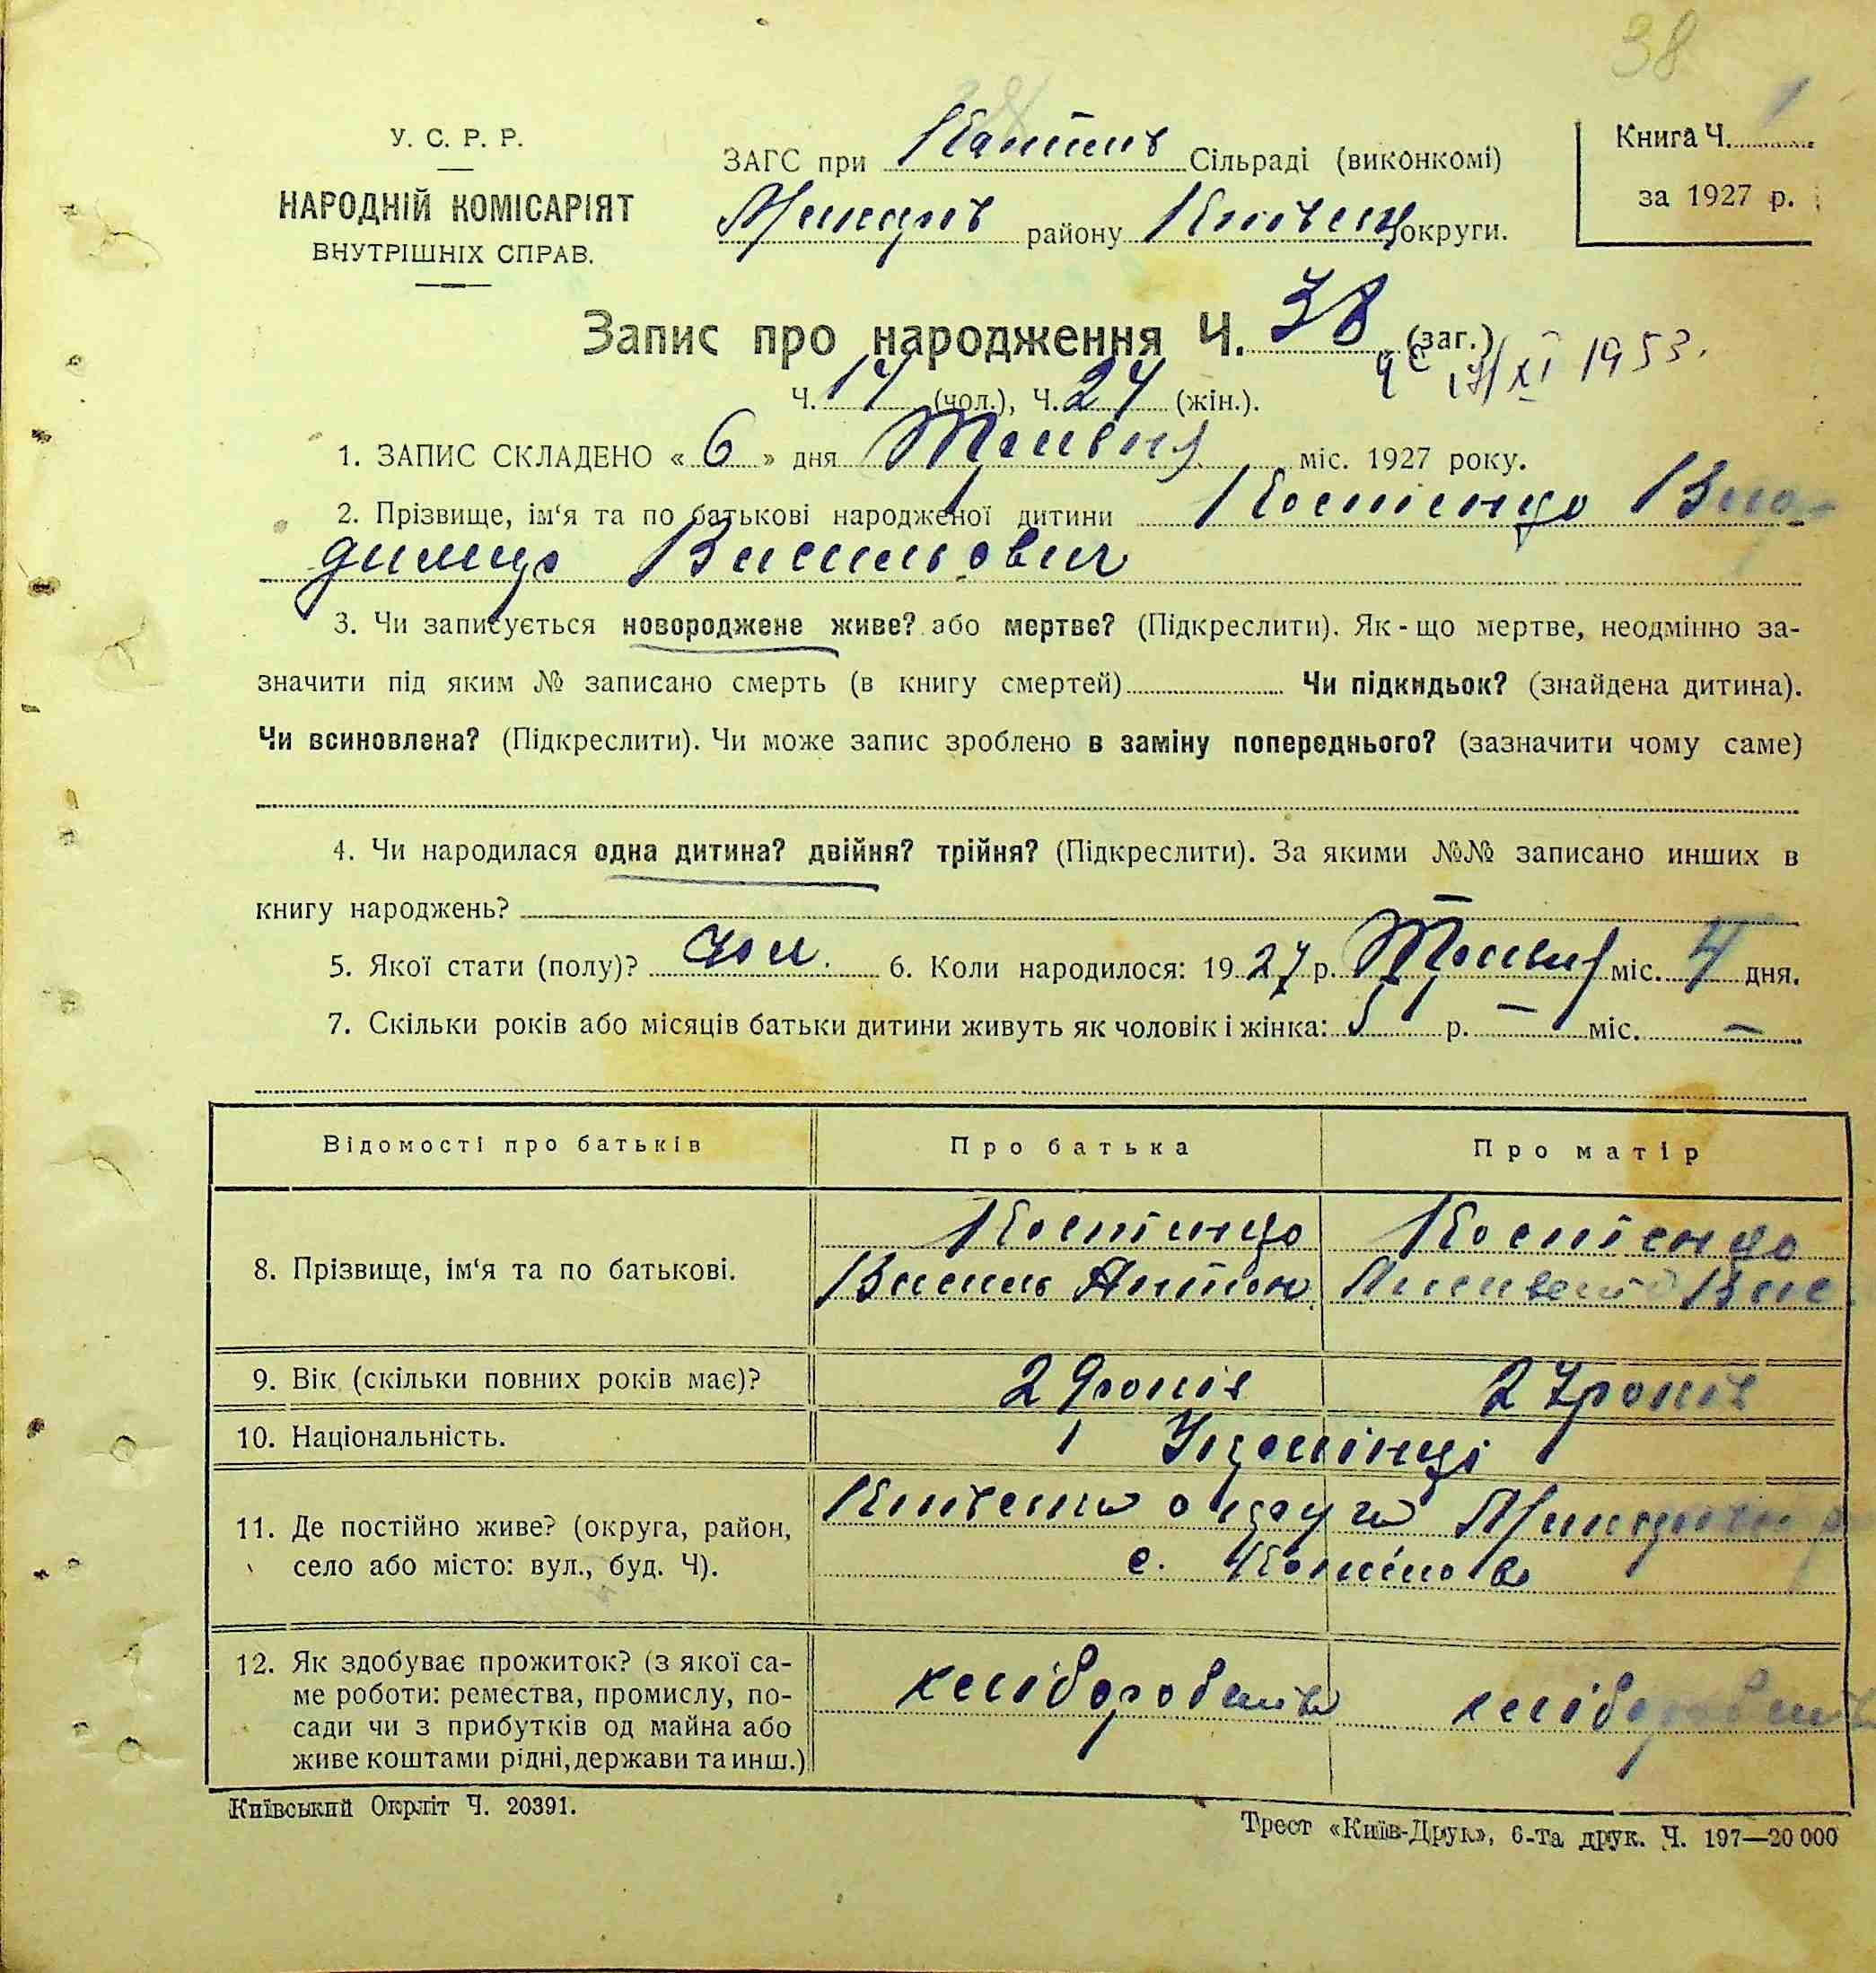 38
У. С. Р. Р.
НАРОДНІЙ КОМІСАРІЯТ
ВНУТРІШНІХ СПРАВ.
ЗАГС при Сільраді (виконкомі)
Макарів району Київськ округи.
Книга Ч. 1
за 1927 р.
Запис про народження Ч. 38 (заг.)
1953.
Ч. 14 (чол.), Ч. 24 (жін.).
1. ЗАПИС СКЛАДЕНО « 6 » дня Травня міс. 1927 року.
2. Прізвище, ім‘я та по батькові народженої дитини Костенко Воло-
димир Васильович
3. Чи записується новороджене живе? або мертве? (Підкреслити). Як-що мертве, неодмінно за-
значити під яким № записано смерть (в книгу смертей) Чи підкидьок? (знайдена дитина).
Чи всиновлена? (Підкреслити). Чи може запис зроблено в заміну попереднього? (зазначити чому саме)
4. Чи народилася одна дитина? двійня? трійня? (Підкреслити). За якими №№ записано инших в
книгу народжень? —
5. Якої стати (полу)? чол. 6. Коли народилося: 1927 р. Травня міс. 4 дня.
7. Скільки років або місяців батьки дитини живуть як чоловік і жінка: 5 р. — міс. —
Відомості про батьків
Про батька
Про матір
8. Прізвище, ім‘я та по батькові.
Василь Антон
Вас
9. Вік (скільки повних років має)?
29 років
27 років
10. Національність.
Українці
11. Де постійно живе? (округа, район,
село або місто: вул., буд. Ч).
Київська округа Макарівськ р
с.
12. Як здобуває прожиток? (з якої са-
ме роботи: ремества, промислу, по-
сади чи з прибутків од майна або
живе коштами рідні, держави та инш.)
хліборобство
хліборобство
Київський Окрліт Ч. 20391.
Трест «Київ-Друк», 6-та друк. Ч. 197—20 000